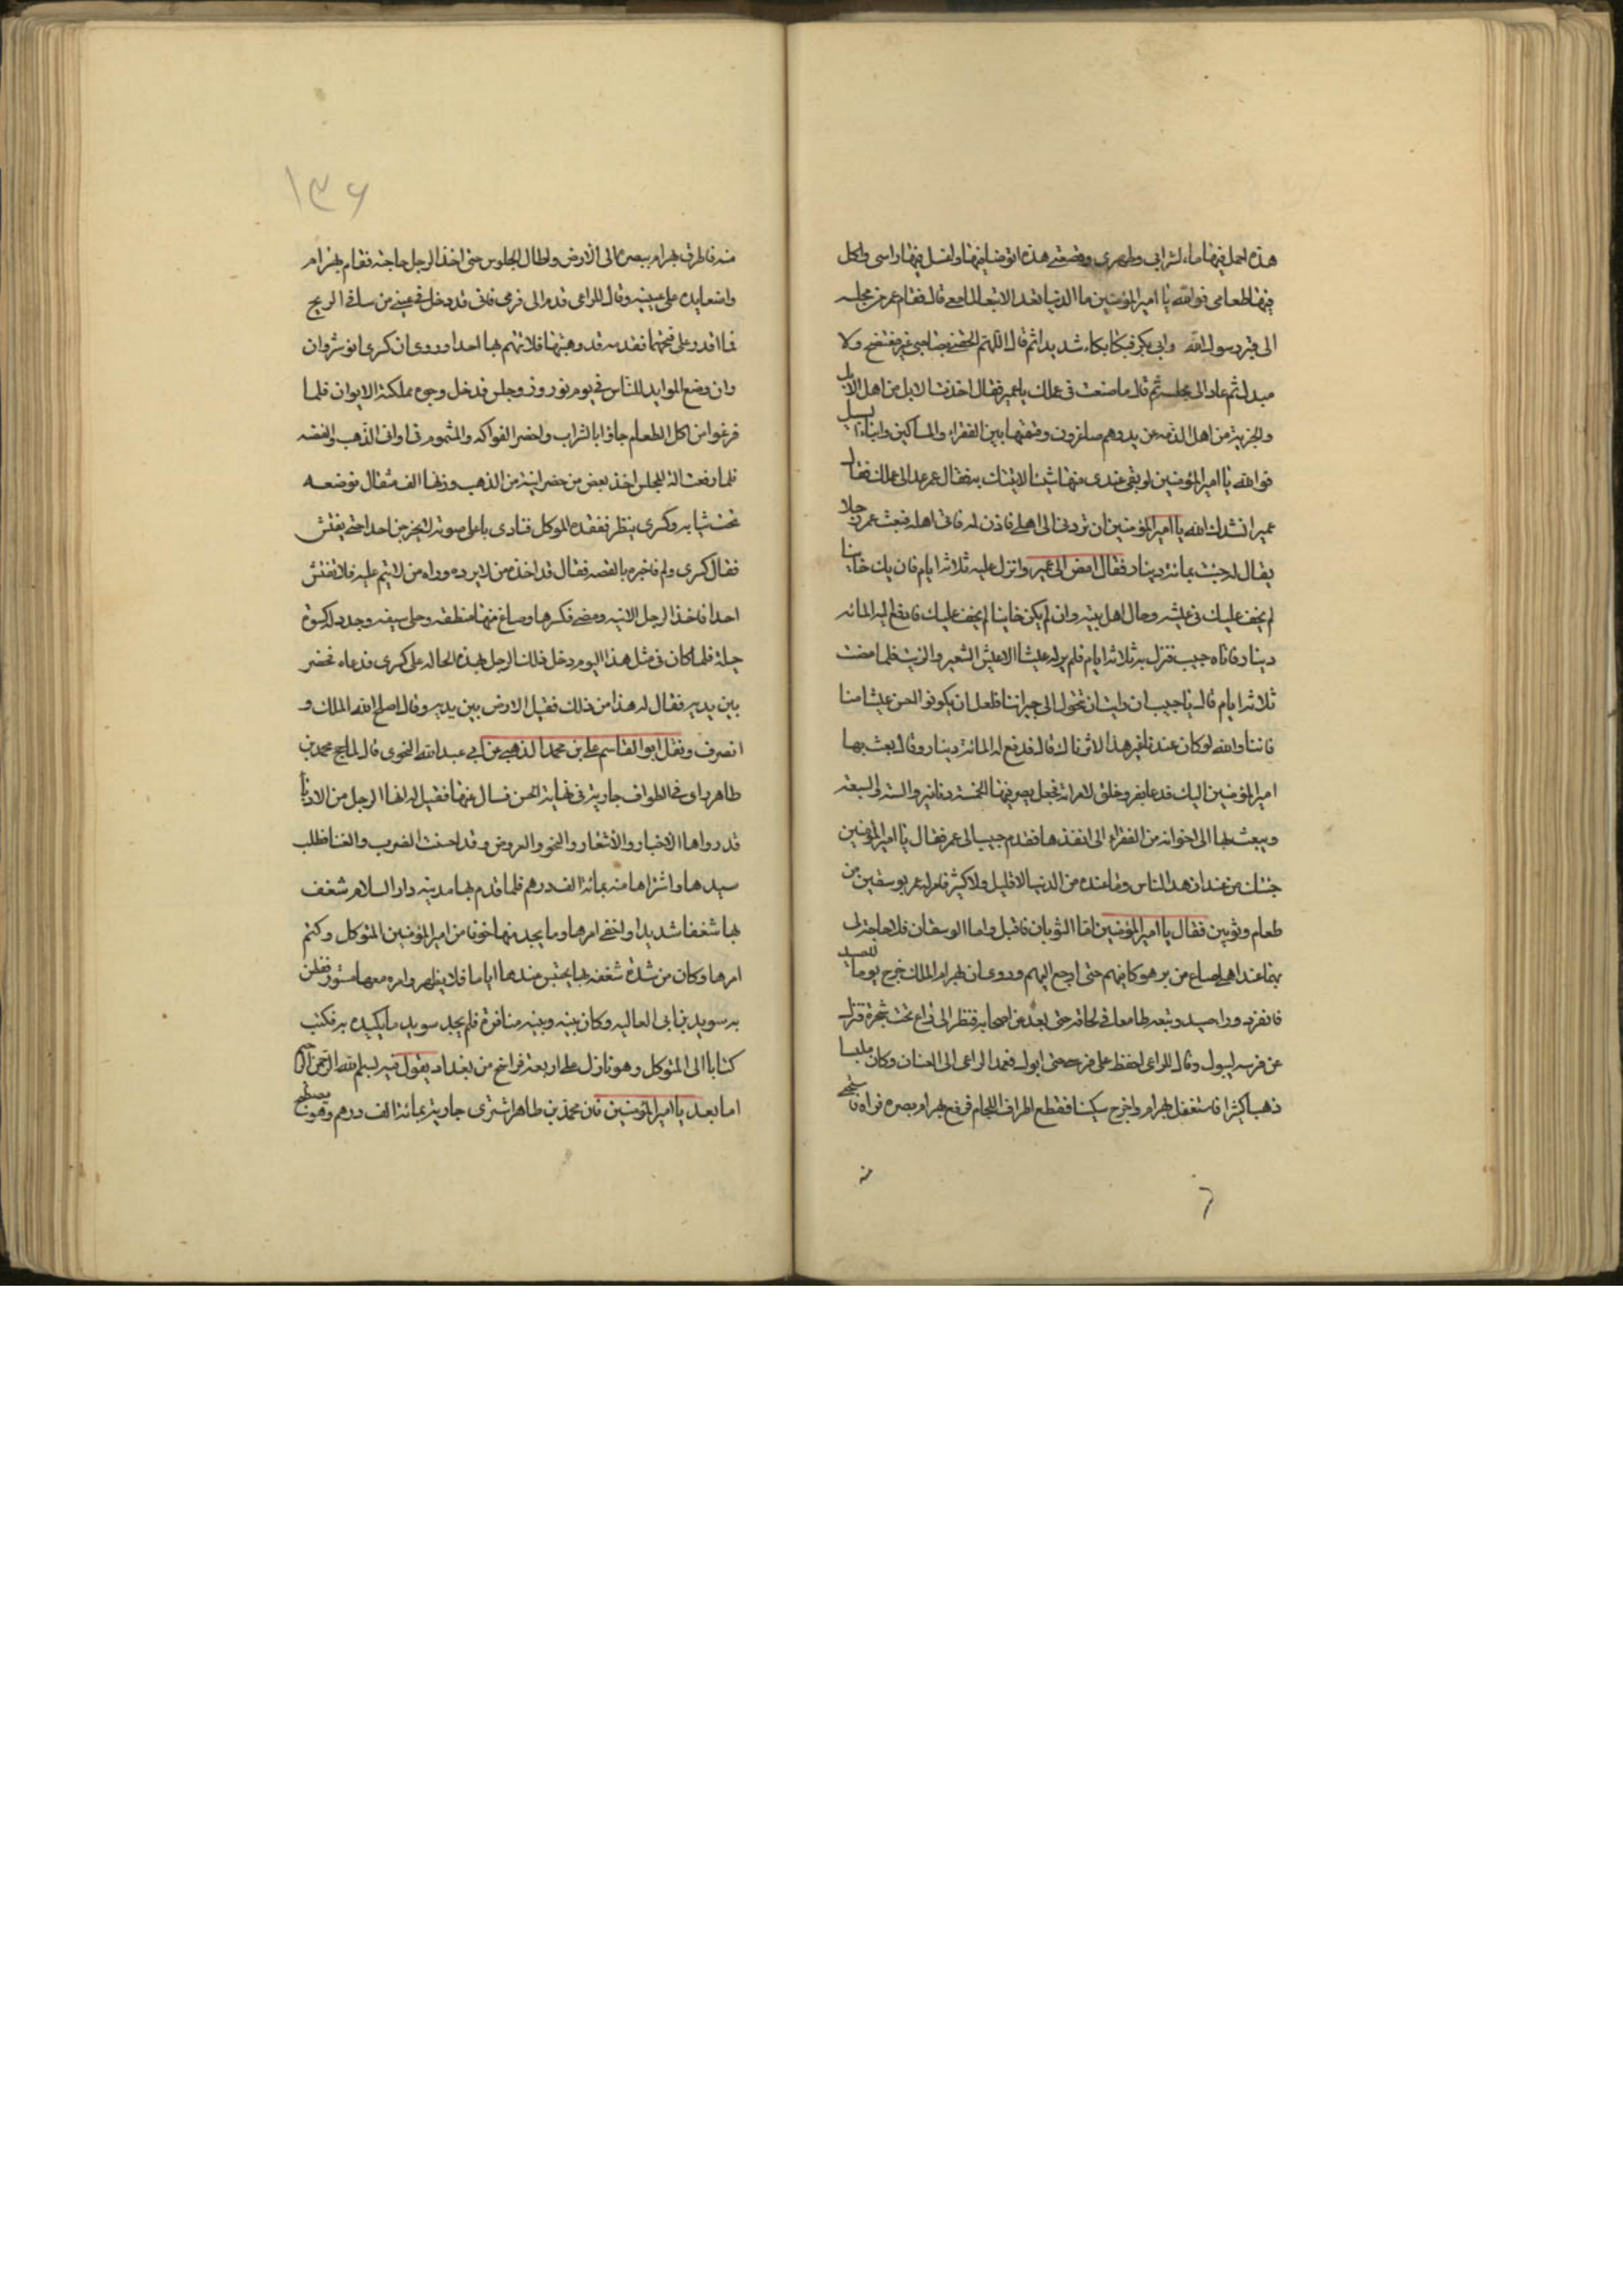 هذه احمل فيها ماء لشرابي وطهوري وقصعتي هذه اتوضا فيها واغسل فيها راسي واكل
فيها طعامي فوالله يا امير المؤمنين ما الدنيا بعد الا تبعا لما معي قال فقام عمر من مجلسه
الى قبر رسول الله وابي بكر فبكا بكاء شديدا ثم قال اللهم الحقني بصاحبي غير مفتضح ولا
مبدل ثم عاد الى مجلسه ثم قال ما صنعت في عملك يا عمير فقال اخذت الابل من اهل الابل
والجزية من اهل الذمه عن يد وهم صاغرون وقسمتها بين الفقراء والمساكين وابناء السبيل
فوالله يا امير المؤمنين لو بقي عندي منها شيئا لاتيتك به فقال عمر عد الى عملك فقال
عمير انشدك الله يا امير المؤمنين ان تردني الى اهلي فاذن له فاتى اهله فبعث عمر رجلا
يقال له حبيب بمائة دينار فقال امض الى عمير وانزل عليه ثلاثة ايام فان يك خاينا
لم يخف عليك في عيشه وحال اهل بيته وان لم يكن خاينا لم يخف عليك فادفع اليه المائه
دينار فاتاه حبيب فنزل به ثلاثة ايام فلم ير له عيشا الا عيش الشعير والزيت فلما مضت
ثلاثة ايام قال يا حبيب ان رايت ان تتحول الى جيراننا فلعل ان يكونوا احسن عيشا منا
فاننا والله لو كان عندنا غير هذا لاثرناك قال فدفع له المائة دينار وقال بعث بها
امير المؤمنين اليك فدعا بفرو خلق لامراته فجعل يصر فيها الخمسة دنانير والستة والسبعة
ويبعث بها الى اخوانه من الفقراء الى انفذها فقدم حبيب الى عمر فقال يا امير المؤمنين
جئتك من عند ازهد الناس وما عنده من الدنيا لا قليل ولا كثير فامر له عمر بوسقين من
طعام وثوبين فقال يا امير المؤمنين اما الثوبان فاقبل واما الوسقان فلا حاجة لي
بهما عند اهلي صاع من بر هو كافيهم حتى ارجع اليهم وروي ان بهرام الملك خرج يوما للصيد
فانفرد وراى صيد وتبعه طامعا في لحاقه حتى بعد عن اصحابه فنظر الى راع تحت شجرة فنزل
عن فرسه ليبول وقال للراعي احفظ علي فرسي حتى ابول فعمد الراعي الى العنان وكان ملبسا
ذهبا كثيرا فاستغفل بهرام واخرج سكينا فقطع اطراف اللجام فرفع بهرام بصره فراه فاستحيى
منه
١٣۶
منه فاطرق بهرام ببصره الى الارض واطال الجلوس حتى اخذ الرجل حاجته فقام بهرام
واضعا يده على عينيه وقال للراعي قدم الى فرسي فاني قد دخل في عيني من سافي الريح
فما اقدر على فتحهما فقدمه قد وهبتها فلا تتهم بها احدا وروي ان كسرى انوشروان
وان وضع الموايد للناس في يوم نوروز وجلس ودخل وجوه مملكته الايوان فلما
فرغوا من اكل الطعام جاؤا بالشراب واحضر الفواكه والمشموم في اواني الذهب والفضه
فلما رفعت الة المجلس اخذ بعض من حضر انية من الذهب وزنها الف مثقال فوضعه
تحت ثيابه وكسرى ينظر ففقده الموكل فنادى باعلى صوته لا يخرجن احد حتى يفتش
فقال كسرى ولم فاخبره بالقصه فقال قد اخذه من لا يرده وراه من لا ينم عليه فلا تفتش
احدا فاخذ الرجل الانيه ومضى فكسرها وصاغ منها منطقه وحلى سيفه وجدد له كسوة
جميلة فلما كان في مثل هذا اليوم دخل ذلك الرجل بهذه الحاله على كسرى فدعاه فحضر
بين يديه فقال له هذا من ذلك فقبل الارض بين يديه وقال اصلح الله الملك و
انصرف ونقل ابو القاسم علي بن محمد الذهبي عن ابي عبد الله النحوي قال لما حج محمد بن
طاهر راى في الطواف جارية في نهاية الحسن فسال عنها فقيل له انها الرجل من الادبا
قد رواها الاخبار والاشعار والنحو والعروض وقد احسنت الضرب والغنا فطلب
سيدها واشتراها منه بمائة الف درهم فلما قدم بها مدينه دار السلام شغف
بها شغفا شديدا واخفى امرها وما يجد منها خوفا من امير المؤمنين المتوكل وكتم
امرها وكان من شدة شغفه بها يحتبس عندها اياما فلا يظهر وامره معها مستور ففطن
به سويد بن ابي العاليه وكان بينه وبينه منافرة فلم يجد سويد ما يكيده به فكتب
كتابا الى المتوكل وهو نازل على اربعة فراسخ من بغداد يقول فيه بسم الله الرحمن الرحيم
اما بعد يا امير المؤمنين فان محمد بن طاهر اشترى جارية بمائة الف درهم وهو يصطبح